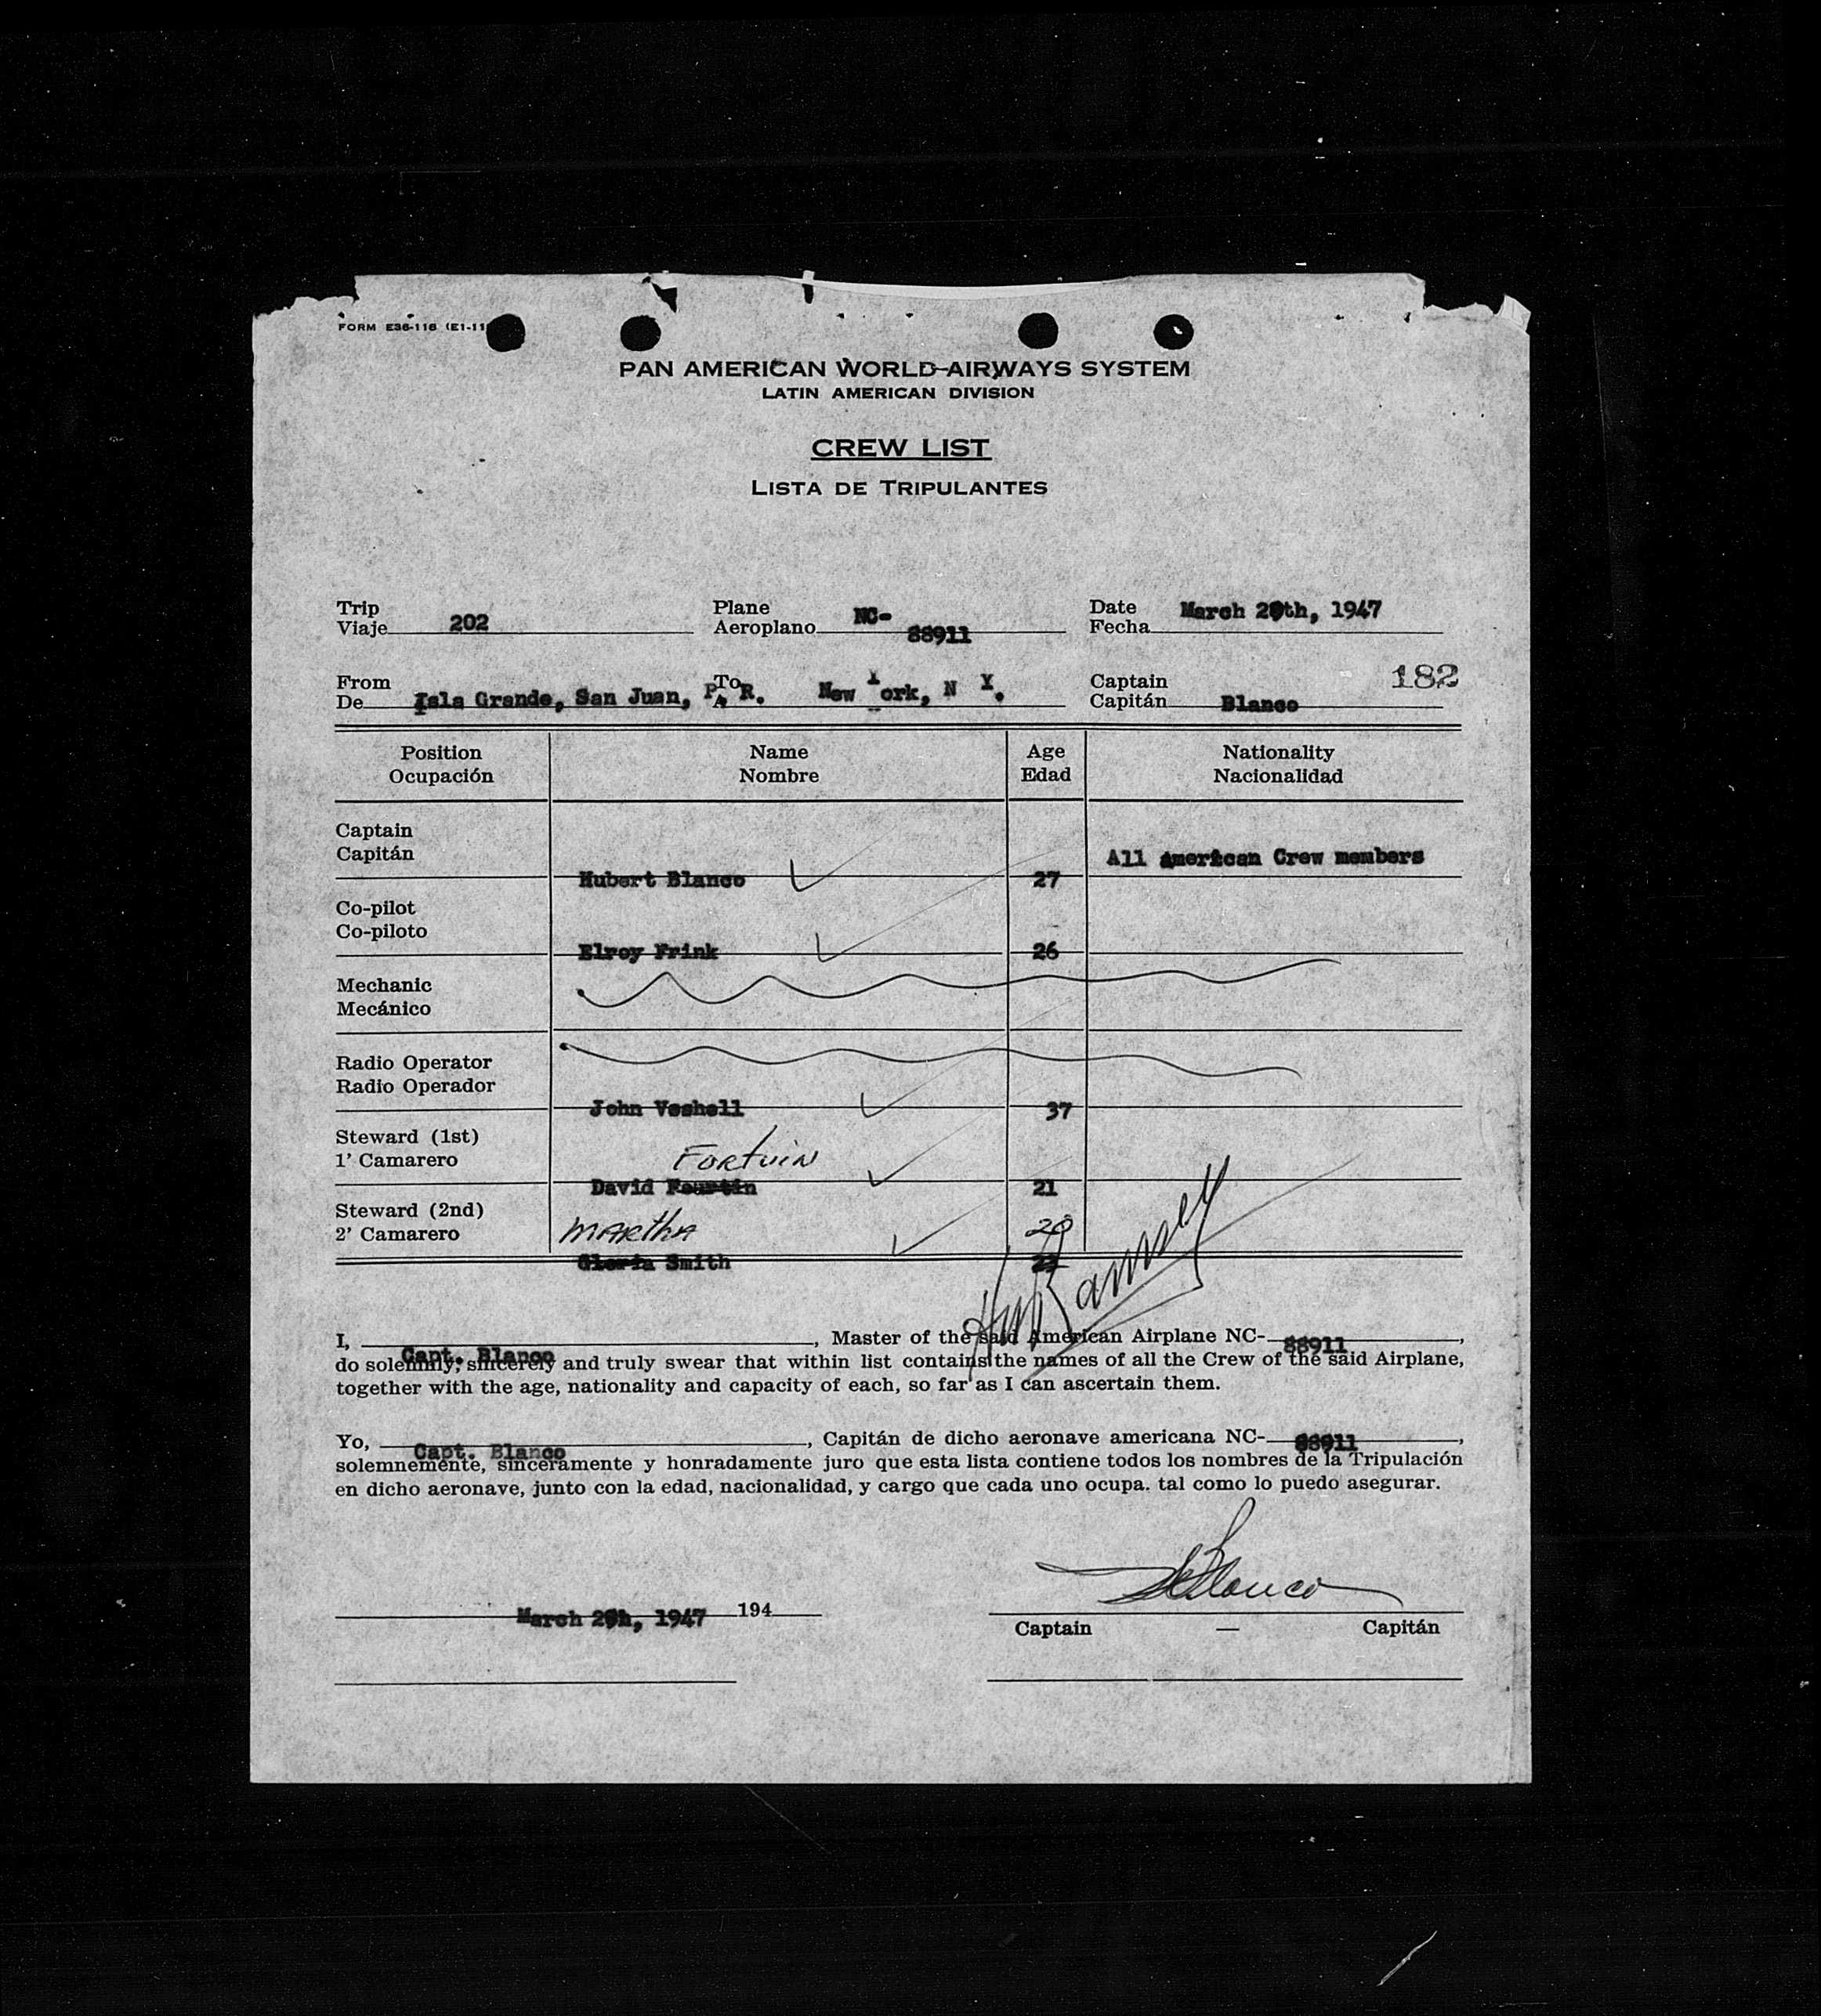 FORM E36-118 (E1-11
PAN AMERICAN WORLD AIRWAYS SYSTEM
LATIN AMERICAN DIVISION
CREW LIST
LISTA DE TRIPULANTES
Trip Plane NC- Date March th, 1947
Viaje 202 Aeroplano 88911 Fecha
182
From To Captain
De Isla Grande, San Juan, P. R. A New York, N Y. Capitán Blanco
Position Name Age Nationality
Ocupación Nombre Edad Nacionalidad
Captain
Capitán All American Crew members
Hubert Blanco 27
Co-pilot
Co-piloto
Elroy Frink 26
Mechanic
Mecánico
Radio Operator
Radio Operador
John Veshell 37
Steward (1st)
1' Camarero Fortuin
David Fourtin 21
Steward (2nd)
2' Camarero Martha 20
Gloria Smith
I, Capt. Blanco, Master of the said American Airplane NC- 88911,
do solemnly, sincerely and truly swear that within list contains the names of all the Crew of the said Airplane,
together with the age, nationality and capacity of each, so far as I can ascertain them.
Yo, Capt. Blanco, Capitán de dicho aeronave americana NC- 88911,
solemnemente, sinceramente y honradamente juro que esta lista contiene todos los nombres de la Tripulación
en dicho aeronave, junto con la edad, nacionalidad, y cargo que cada uno ocupa. tal como lo puedo asegurar.
Blanco
March , 1947 194
Captain — Capitán